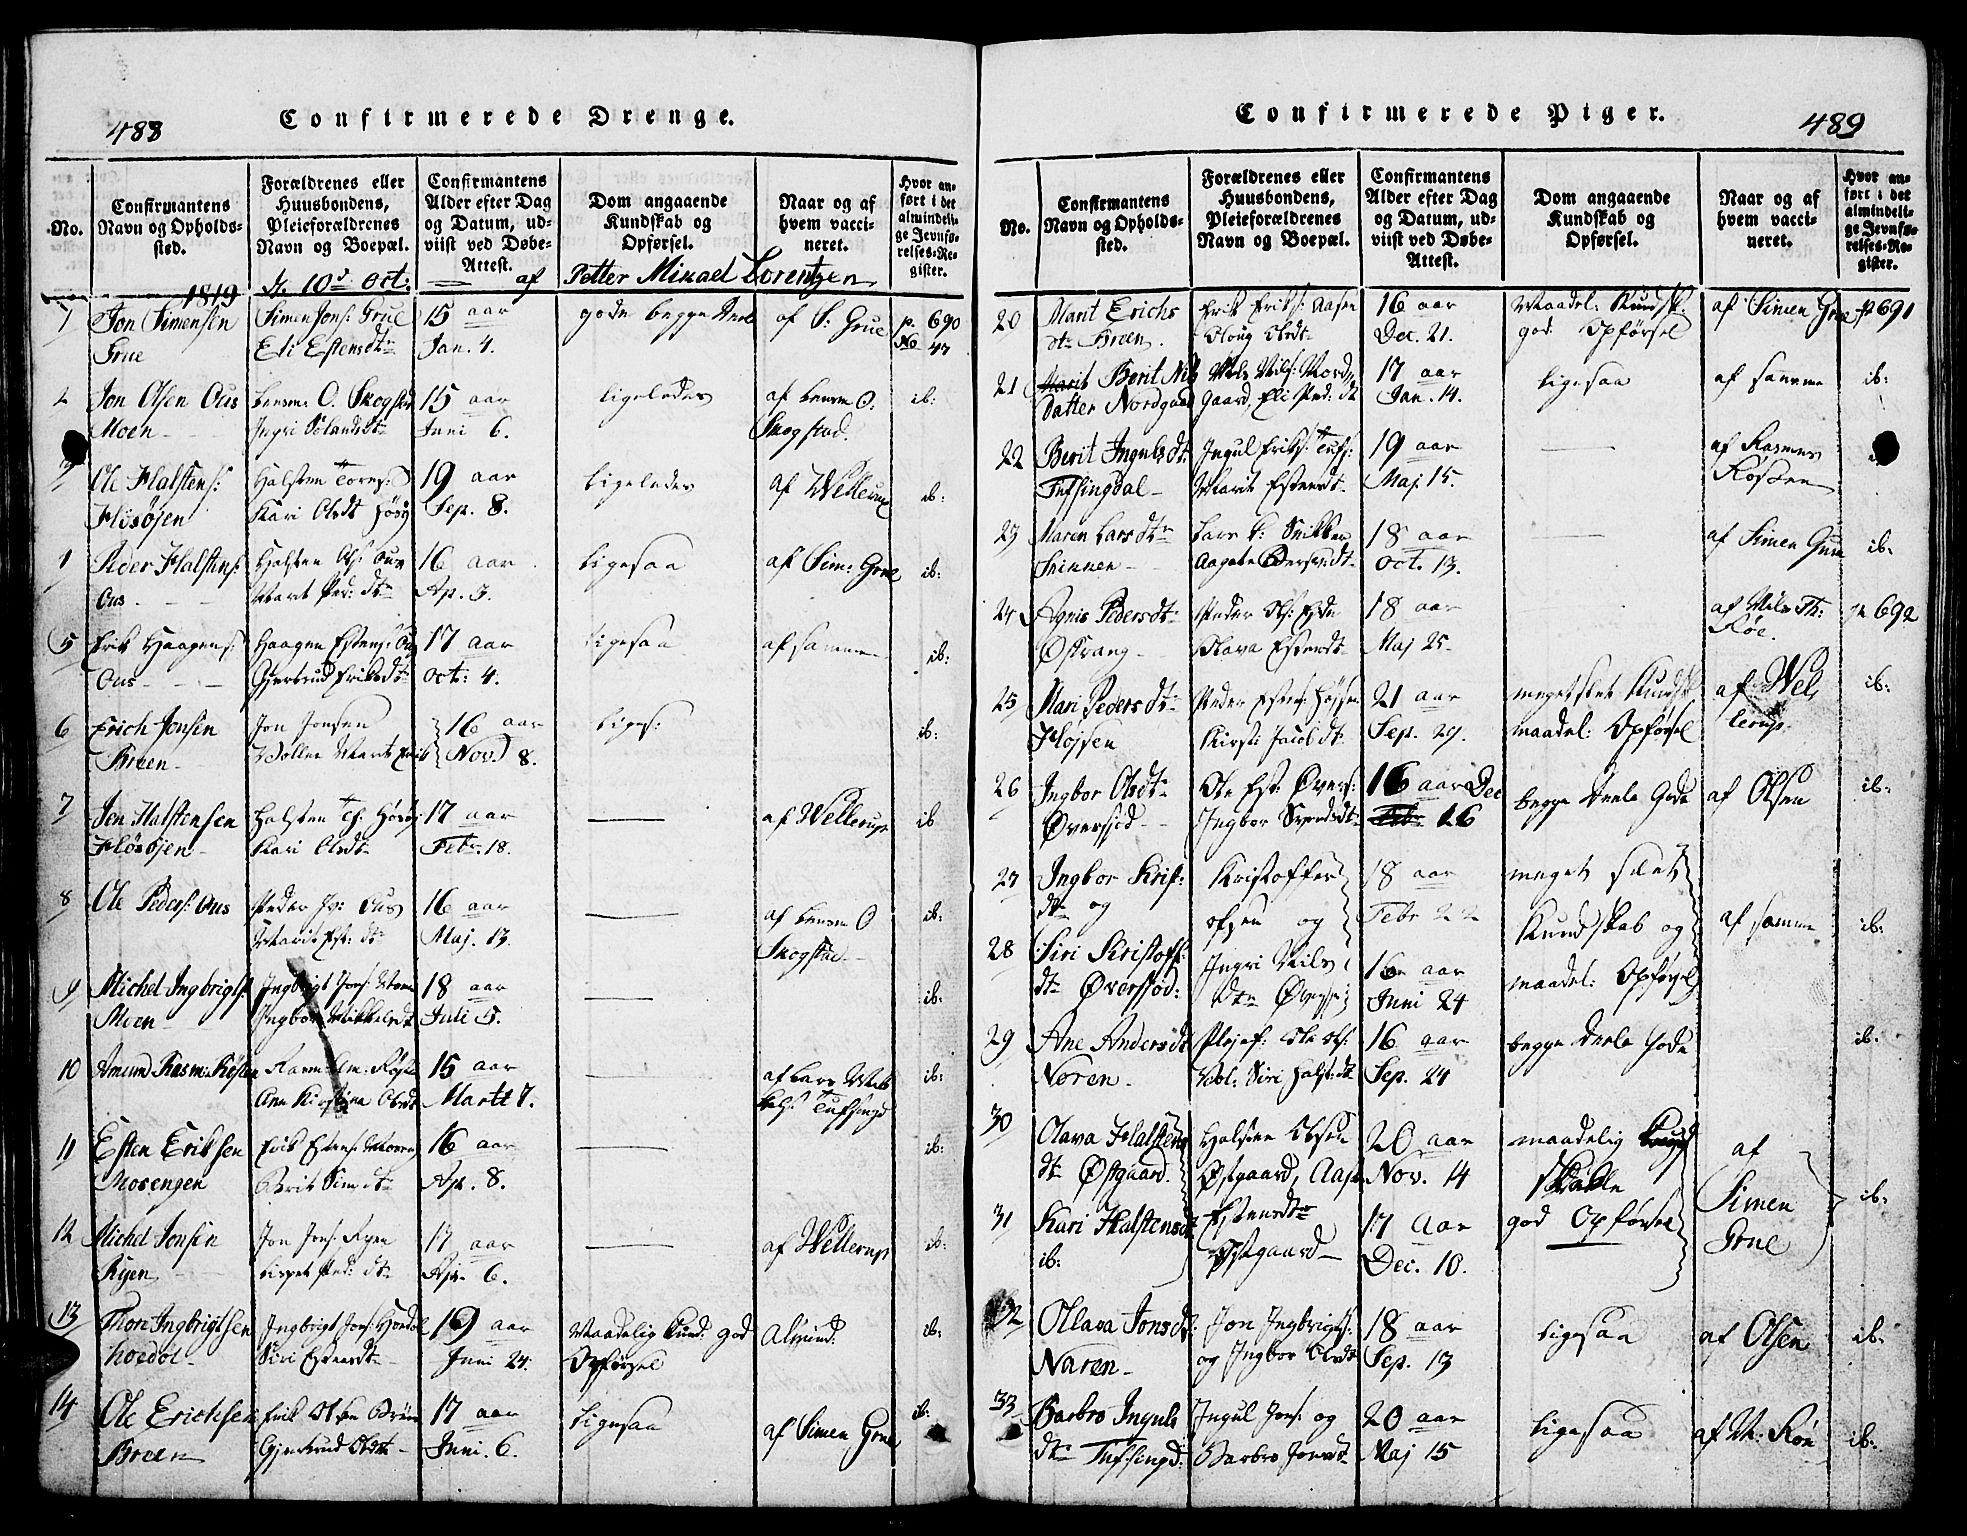 488
Confirmerede Drenge.
No.
Confirmantens
Navn og Opholds-
sted.
Forældrenes eller
Huusbondens,
Pleieforældrenes
Navn og Boepæl.
Confirmantens
Alder efter Dag
og Datum, ud-
viist ved Døbe-
Attest.
Dom angaaende
Kundskab og
Opførsel.
Naar og af
hvem vacci-
neret.
Hvor an-
ført i det
almindeli-
ge Jevnfø-
relses-Re-
gister.
1819 10d Oct: af Petter Mikael Lorentzen
1
Jon Simensen
Grue
Simen Jons: Grue
Eli Estensdtr
15 aar
Jan. 4.
gode begge Deele
af S: Grue
p. 690
No 47
2
Jon Olsen Ous
Moen
Lensm: O. Skogstad
Ingri
15 aar
Juni 6.
Ligeledes
af Lensm O:
Skogstad.
ib:
3
Ole Halstens:
Høsøjen
Halsten Tores:
Kari Olsdt
19 aar
Sep. 8.
Ligeledes
af Wellerup
ib:
4
Peder Halstens:
Ous
Halsten Ols: Ous
Marit Ped: dtr
16 aar
Ap. 3.
Ligesaa
af Sim: Grue
ib:
5
Erik Haagens:
Ous
Haagen Estens: Ous
Gjertrud Eriksdtr
17 aar
Oct: 4.
Ligesaa
af samme
ib:
6
Erich Jonsen
Breen
Jon Jonsen
16 aar
Nov. 8.
Liges:
ib:
7
Jon Halstensen
Høsøjen
Halsten
Kari Olsdtr
17 aar
Febr. 18.
af Wellerup
ib
8
Ole Peders: Ous
Peder Ous
Marit Est: dtr
16 aar
Maj. 13.
af Lensm O
Skogstad
ib:
9
Michel Ingbrigts:
Moen
Ingbrigt Jons: Moen
Ingbor Mikkelsdt
18 aar
Juli 5.
ib:
10
Amund Rasm:
Ane Kirstina Olsdt
15 aar
Marti 7.
af Lars
Tufsingd
ib:
11
Esten Eriksen
Mosengen
Erik Estens:
Brit Sim: dtr
16 aar
Ap. 8.
ib:
12
Michel Jonsen
Ryen
Jon Jons: Ryen
Lispet Ped: dtr
17 aar
Apr. 6.
af Wellerup
ib:
13
Thore Ingbrigtsen
Hoedøl
Ingbrigt Jons: Hoedøl
Siri Estensdtr
19 aar
Juni 24.
Maadelig Kund: god
Opførsel
Almind.
ib:
14
Ole Erichsen
Breen
Erik Olsen
Gjertrud Olsdt
17 aar
Juni. 6.
Ligesaa
af Simen Grue
ib:
Confirmerede Piger.
489
No.
Confirmantens
Navn og Opholds-
sted.
Forældrenes eller
Huusbondens,
Pleieforældrenes
Navn og Boepæl.
Confirmantens
Alder efter Dag
og Datum, ud-
viist ved Døbe-
Attest.
Dom angaaende
Kundskab og
Opførsel.
Naar og af
hvem vacci-
neret.
Hvor an-
ført i det
almindeli-
ge Jevnfø-
relses-Re-
gister.
20
Marit Erichs
dtr Breen.
Erik Eriks: Aasen
Oloug Olsdtr
16 aar
Dec. 21.
Maadel: Kundsk:
god: Opførsel
af Simen Grue
p 691
21
Berit Nils
Datter Nordgaard
Nils Nils: Nord
gaard, Eli Ped: dt
17 aar
Jan. 14.
Ligesaa
af samme
ib:
22
Berit Inguls dt.
Tufsingdal
Ingul Eriks: Tufs:
Marit Estensdt
19 aar
Maj. 15.
af Rasmus
Rosøen
23
Maren Lars dtr
Lars L: Snikker
Aagete Pedersdt
18 aar
Oct. 13.
af Simen Grue
ib:
24
Agnis Pedersdtr
Østvang
Peder Ols:
Olava Estensdt
18 aar
Maj 25.
af Nils Th:
Røe.
p. 692
25
Mari Peders dtr
Højsen
Peder Estens: Højsen
Kirst: Jacobdt.
21 aar
Sep. 29.
meget slet Kundsk
maadel: Opførsel
af Wel
lerup.
ib:
26
Ingbor Olsdtr
Øversjød
Ole Est: Øvers:
Ingbor Syverdsdtr
16 aar Dec
26
begge Deele Gode
af Olsen
ib:
27
Ingbor Krist:
dtr og
Kristoffer
Olsen og
18 aar
Febr 22
meget slet
Kundskab og
maadel: Opførsel
af samme
ib:
28
Siri Kristoff:
dtr Øversjød:
Ingri Nils
dtr Øversjø
16 aar
Juni 24
29
Ane Anders dt
Noren
Plejef: Ole Ols:
Siri Halst: dt
16 aar
Sep. 24
begge Deele Gode
ib:
30
Olava Halstens
dtr Østgaard.
Halsten Olsen
Østgaard, Aase
20 aar
Nov. 14
maadelig
god Opførsel
af
Simen
Grue
ib:
31
Kari Halstensdt
ib:
Estensdtr
Østgaard
17 Aar
Dec. 10.
32
Ollava Jonsdt:
Naren
Jon Ingbrigts:
og Ingbor Olsdt
18 aar
Sep. 13
Ligesaa
af Olsen
ib:
33
Barbro Inguls
dtr Tufsingd:
Ingul Jons: og
Barbro Jonsdt
20 aar
Maj 15
Ligesaa
af N: Røe
ib: